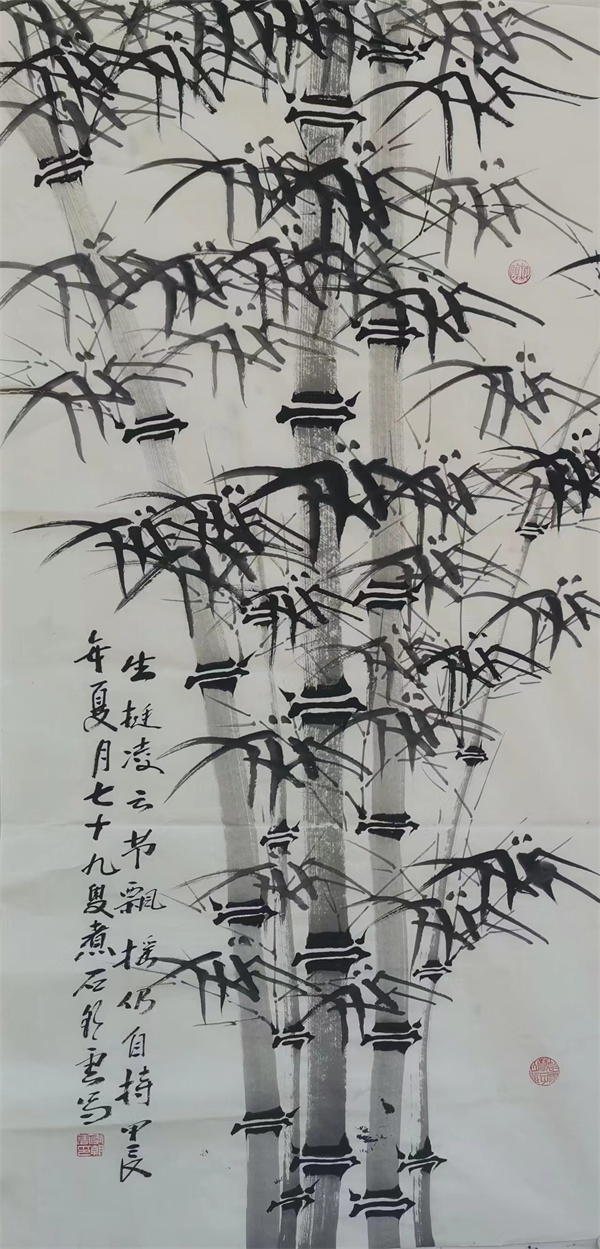 生挺凌云节飘摇仍自持甲辰
年夏月七十九叟煮石写